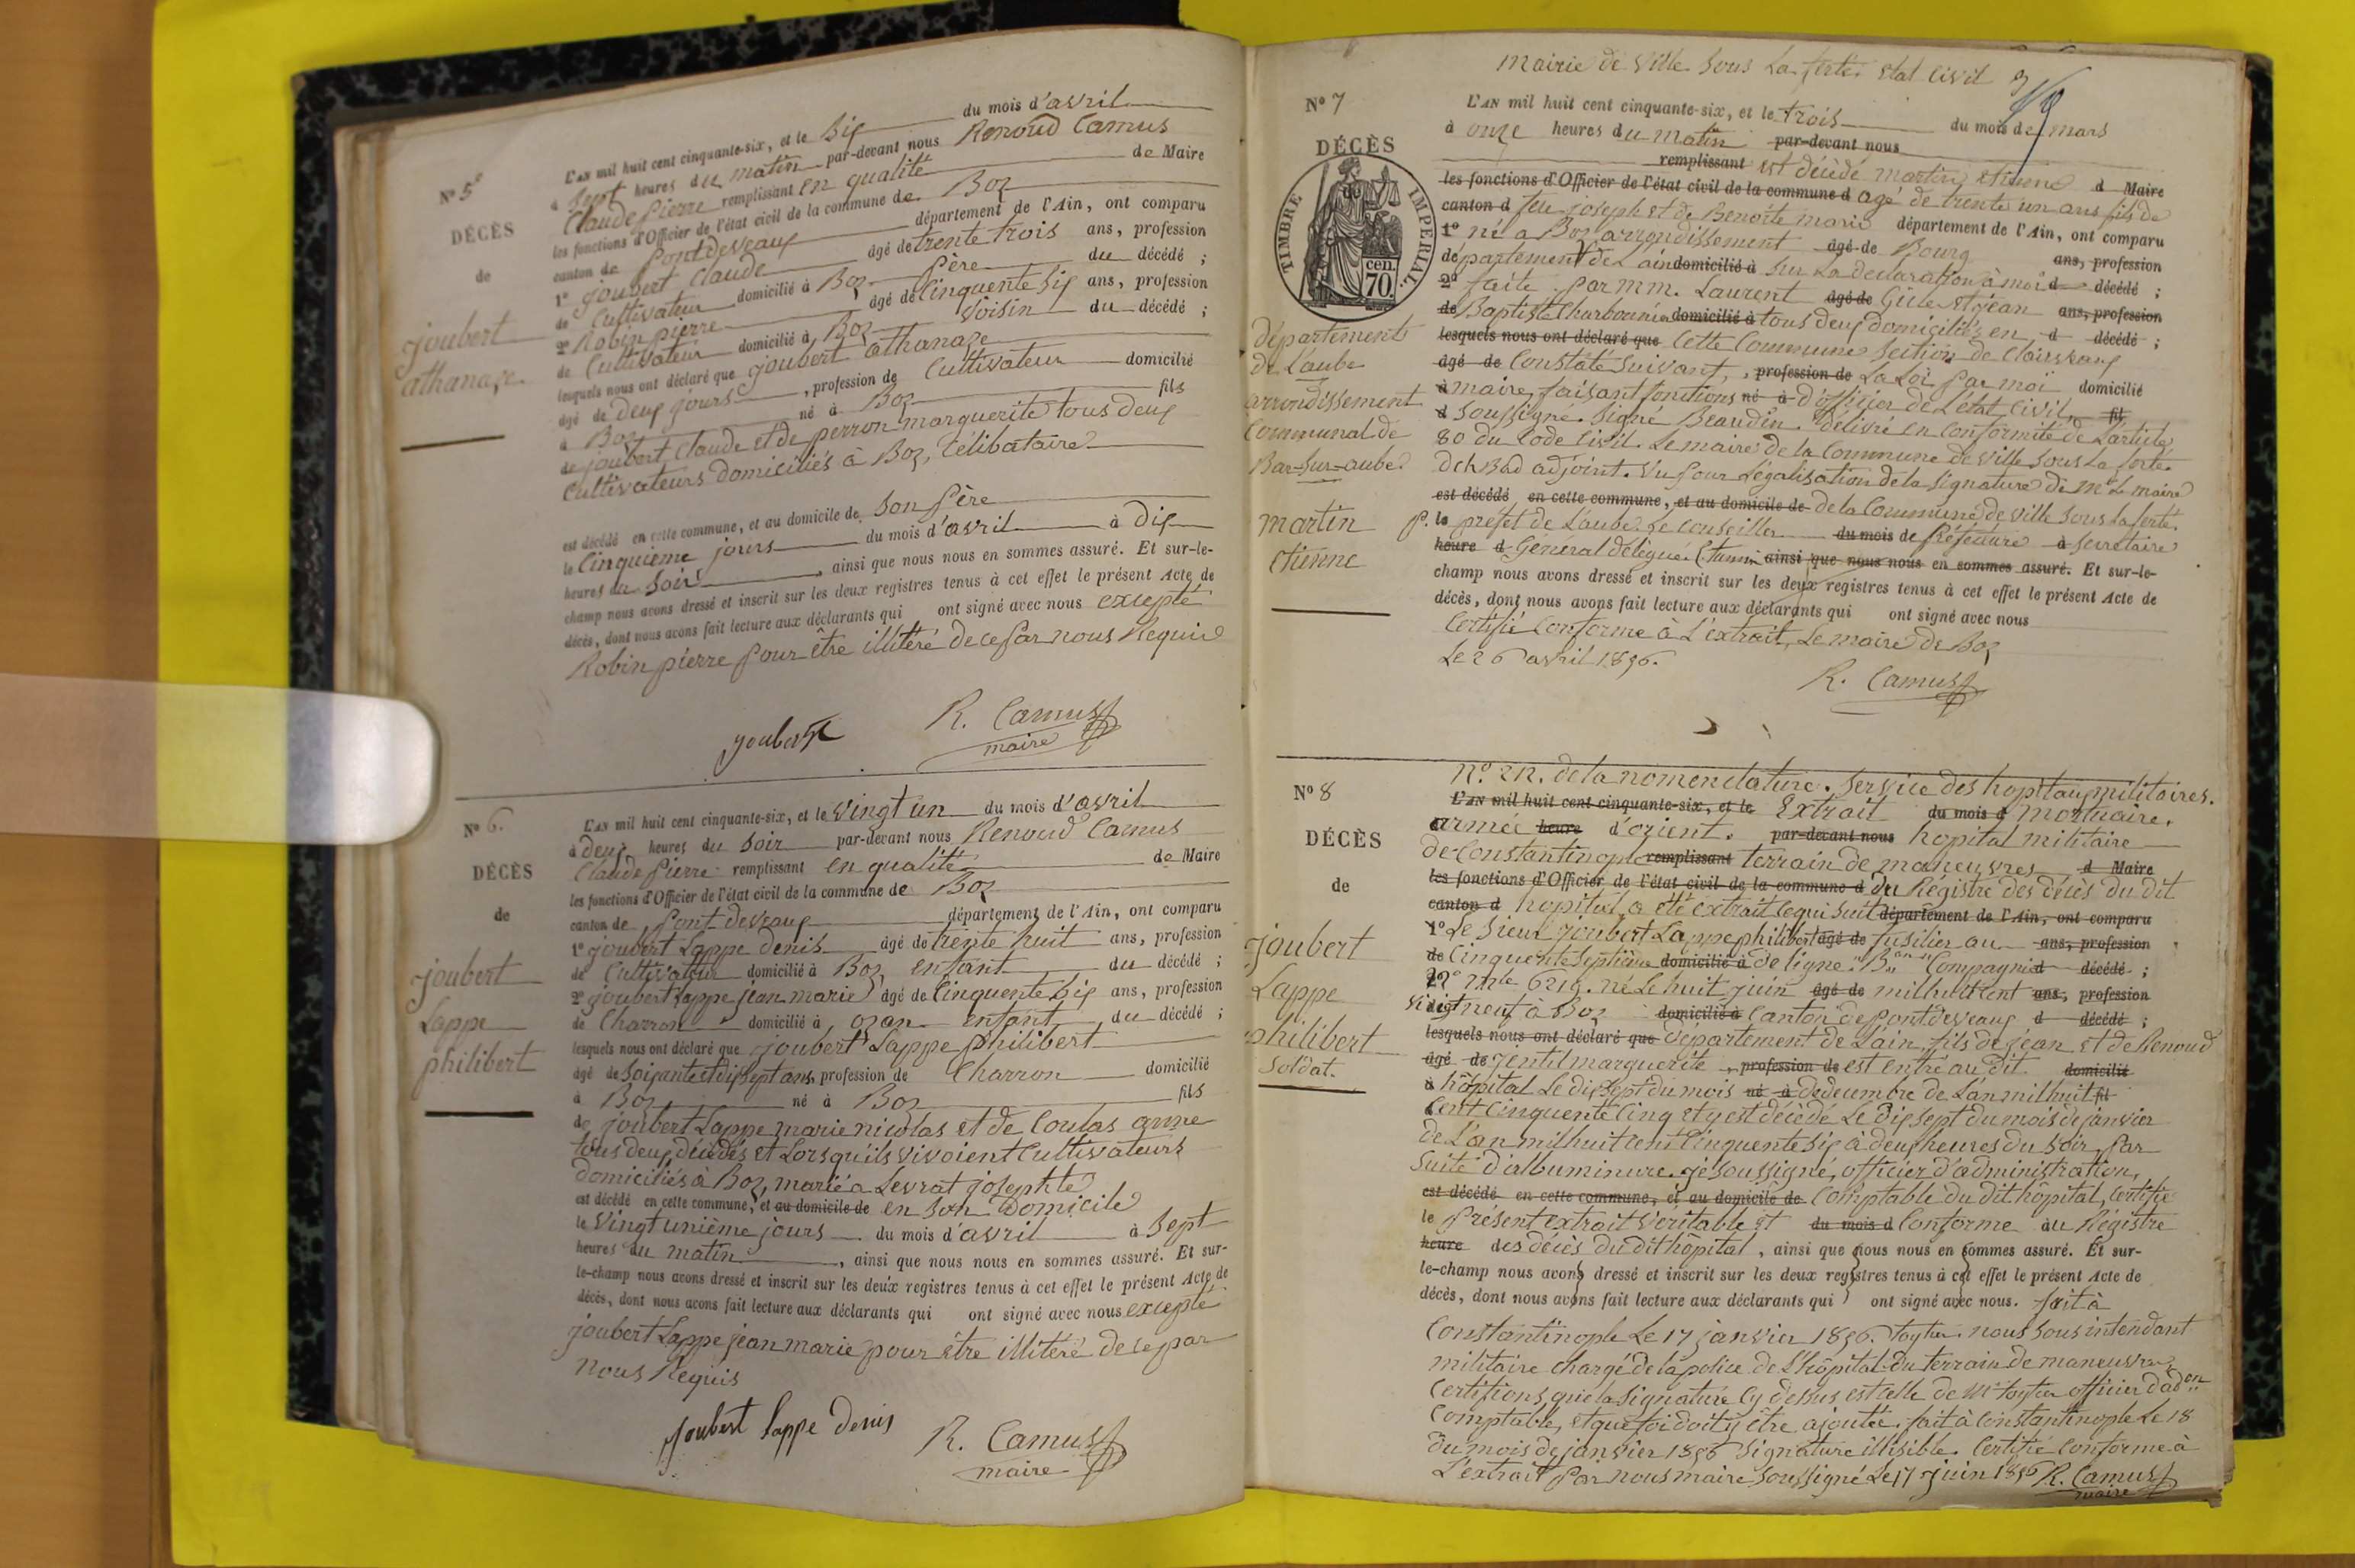 N° 5
DÉCÈS
de
joubert
athanaze
L'AN mil huit cent cinquante-six, et le Six du mois d'avril
à Sept heures du matin par-devant nous Renoud Camus
Claude Pierre remplissant en qualité de Maire
les fonctions d'Officier de l'état civil de la commune de Boz
canton de Pont deveaux département de l'Ain, ont comparu
1° joubert Claude âgé de trente trois ans, profession
de Cultivateur domicilié à Boz Père du décédé ;
2° Robin pierre âgé de Cinquente Six ans, profession
de Cultivateur domicilié à Boz Voisin du décédé ;
lesquels nous ont déclaré que joubert athanaze
âgé de deux jours, profession de Cultivateur domicilié
à Boz né à Boz fils
de joubert Claude et de perron marguerite tous deux
Cultivateurs domiciliés à Boz, Célibataire
est décédé en cette commune, et au domicile de Son Père
le Cinquième jours du mois d'avril à Dix
heures du Soir, ainsi que nous nous en sommes assuré. Et sur-le-
champ nous avons dressé et inscrit sur les deux registres tenus à cet effet le présent Acte de
décès, dont nous avons fait lecture aux déclarants qui ont signé avec nous excepté
Robin pierre pour être illitéré de ce par nous Requis
joubert R. Camus
maire
N° 6.
DÉCÈS
de
joubert
Lappe
philibert
L'AN mil huit cent cinquante-six, et le Vingt un du mois d'avril
à deux heures du Soir par-devant nous Renoud Camus
Claude Pierre remplissant en qualité de Maire
les fonctions d'Officier de l'état civil de la commune de Boz
canton de Pont deveaux département de l'Ain, ont comparu
1° joubert Lappe Denis âgé de trente huit ans, profession
de Cultivateur domicilié à Boz, enfant du décédé ;
2° joubert Lappe jean marie âgé de Cinquente Six ans, profession
de Charron domicilié à ozan enfant du décédé ;
lesquels nous ont déclaré que joubert Lappe philibert
âgé de Soixante et dix Sept ans, profession de Charron domicilié
à Boz né à Boz fils
de joubert Lappe marie nicolas et de Coulas anne
tous deux décédés et Lorsqu'ils vivoient Cultivateurs
domiciliés à Boz, marié a Levrat josephte
est décédé en cette commune, et au domicile de en Son Domicile
le Vingt unième jours du mois d'avril à Sept
heures du matin, ainsi que nous nous en sommes assuré. Et sur-
le-champ nous avons dressé et inscrit sur les deux registres tenus à cet effet le présent Acte de
décès, dont nous avons fait lecture aux déclarants qui ont signé avec nous excepté
joubert Lappe jean marie pour être illitéré de ce par
nous Requis
joubert Lappe Denis R. Camus
maire
Mairie de Ville Sous La ferté. Etat Civil
N° 7
DÉCÈS
de
TIMBRE IMPERIAL.
70 cen.
Département
de L'aube
arrondissement
Communal de
Bar-Sur-aube
martin
Etienne
L'AN mil huit cent cinquante-six, et le trois du mois de mars
à onze heures du matin par-devant nous
remplissant est décédé martin Etienne d Maire
les fonctions d'Officier de l'état civil de la commune d agé de trente un ans fils de
canton d feu joseph et de Benoite marie département de l'Ain, ont comparu
1° né a Boz arrondissement âgé de Bourg ans, profession
département de L'ain domicilié à Sur La déclaration à moi d décédé ;
2° faite par MM. Laurent âgé de Gile et jean ans, profession
de Baptiste Charbonnier domicilié à tous deux domiciliés en d décédé ;
lesquels nous ont déclaré que Cette Commune Section de Clairvaux
âgé de Constaté Suivant, profession de La Loi par moi domicilié
à maire, faisant fonctions né à d'officier de L'état Civil, fil
d Soussigné. Signé Beaudin. Délivré en Conformité de L'article
80 du Code Civil. Le maire de la Commune de Ville Sous La ferté.
adjoint. Vu pour Légalisation de la Signature de Mr Le maire
est décédé en cette commune, et au domicile de de la Commune de Ville Sous La ferté.
P. le préfet de L'aube. Le Conseiller du mois de Préfecture à Secretaire
heure d Général délégué. ainsi que nous nous en sommes assuré. Et sur-le-
champ nous avons dressé et inscrit sur les deux registres tenus à cet effet le présent Acte de
décès, dont nous avons fait lecture aux déclarants qui ont signé avec nous
Certifié Conforme à L'extrait, Le maire de Boz
Le 26 avril 1856.
R. Camus
N° 8
DÉCÈS
de
joubert
Lappe
philibert
Soldat.
N°. 22. de la nomenclature. Service des hopitaux militaires.
L'AN mil huit cent cinquante-six, et le Extrait du mois d mortuaire.
armée heure d'orient. par-devant nous hopital militaire
de Constantinople remplissant terrain de manœuvres d Maire
les fonctions d'Officier de l'état civil de la commune d du Régistre des décès du dit
canton d hopital a été extrait ce qui suit département de l'Ain, ont comparu
1° Le Sieur joubert Lappe philibert âgé de fusilier au ans, profession
de Cinquente Septième domicilié à de ligne. Compagnie d décédé ;
2° 6216. né Le huit juin âgé de mil huit cent ans, profession
vingt neuf à Boz domicilié à Canton de Pont deveaux d décédé ;
lesquels nous ont déclaré que Département de L'ain, fils de jean et de Renoud
âgé de gentil marguerite, profession de est entré au dit domicilié
à hôpital Le dix Sept du mois né à de décembre de L'an mil huit fil
Cent Cinquente Cinq et y est décédé Le Dix Sept du mois de janvier
de L'an mil huit cent Cinquente Six à deux heures du Soir, par
Suite d'albuminure. je Soussigné, officier d'administration,
est décédé en cette commune, et au domicile de Comptable du dit hôpital, Certifie
le Présent extrait Véritable et du mois d Conforme au Régistre
heure des décès du dit hôpital, ainsi que nous nous en sommes assuré. Et sur-
le-champ nous avons dressé et inscrit sur les deux registres tenus à cet effet le présent Acte de
décès, dont nous avons fait lecture aux déclarants qui ont signé avec nous. fait à
Constantinople Le 17 janvier 1856. nous Sous intendant
militaire chargé de la police de L'hôpital du terrain de maneuvres
Certifions que la Signature Cy dessus est celle de Mr officier d'adon
Comptable, et que foi doit y être ajoutée. fait à Constantinople Le 18
du mois de janvier 1856 Signature illisible. Certifié Conforme à
L'extrait par nous maire Soussigné Le 17 juin 1856 R. Camus
maire